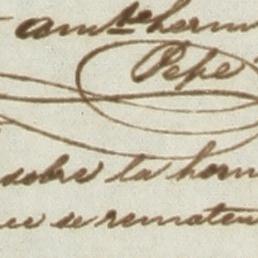 amte herm
Pepe
sobre la herm
se remate